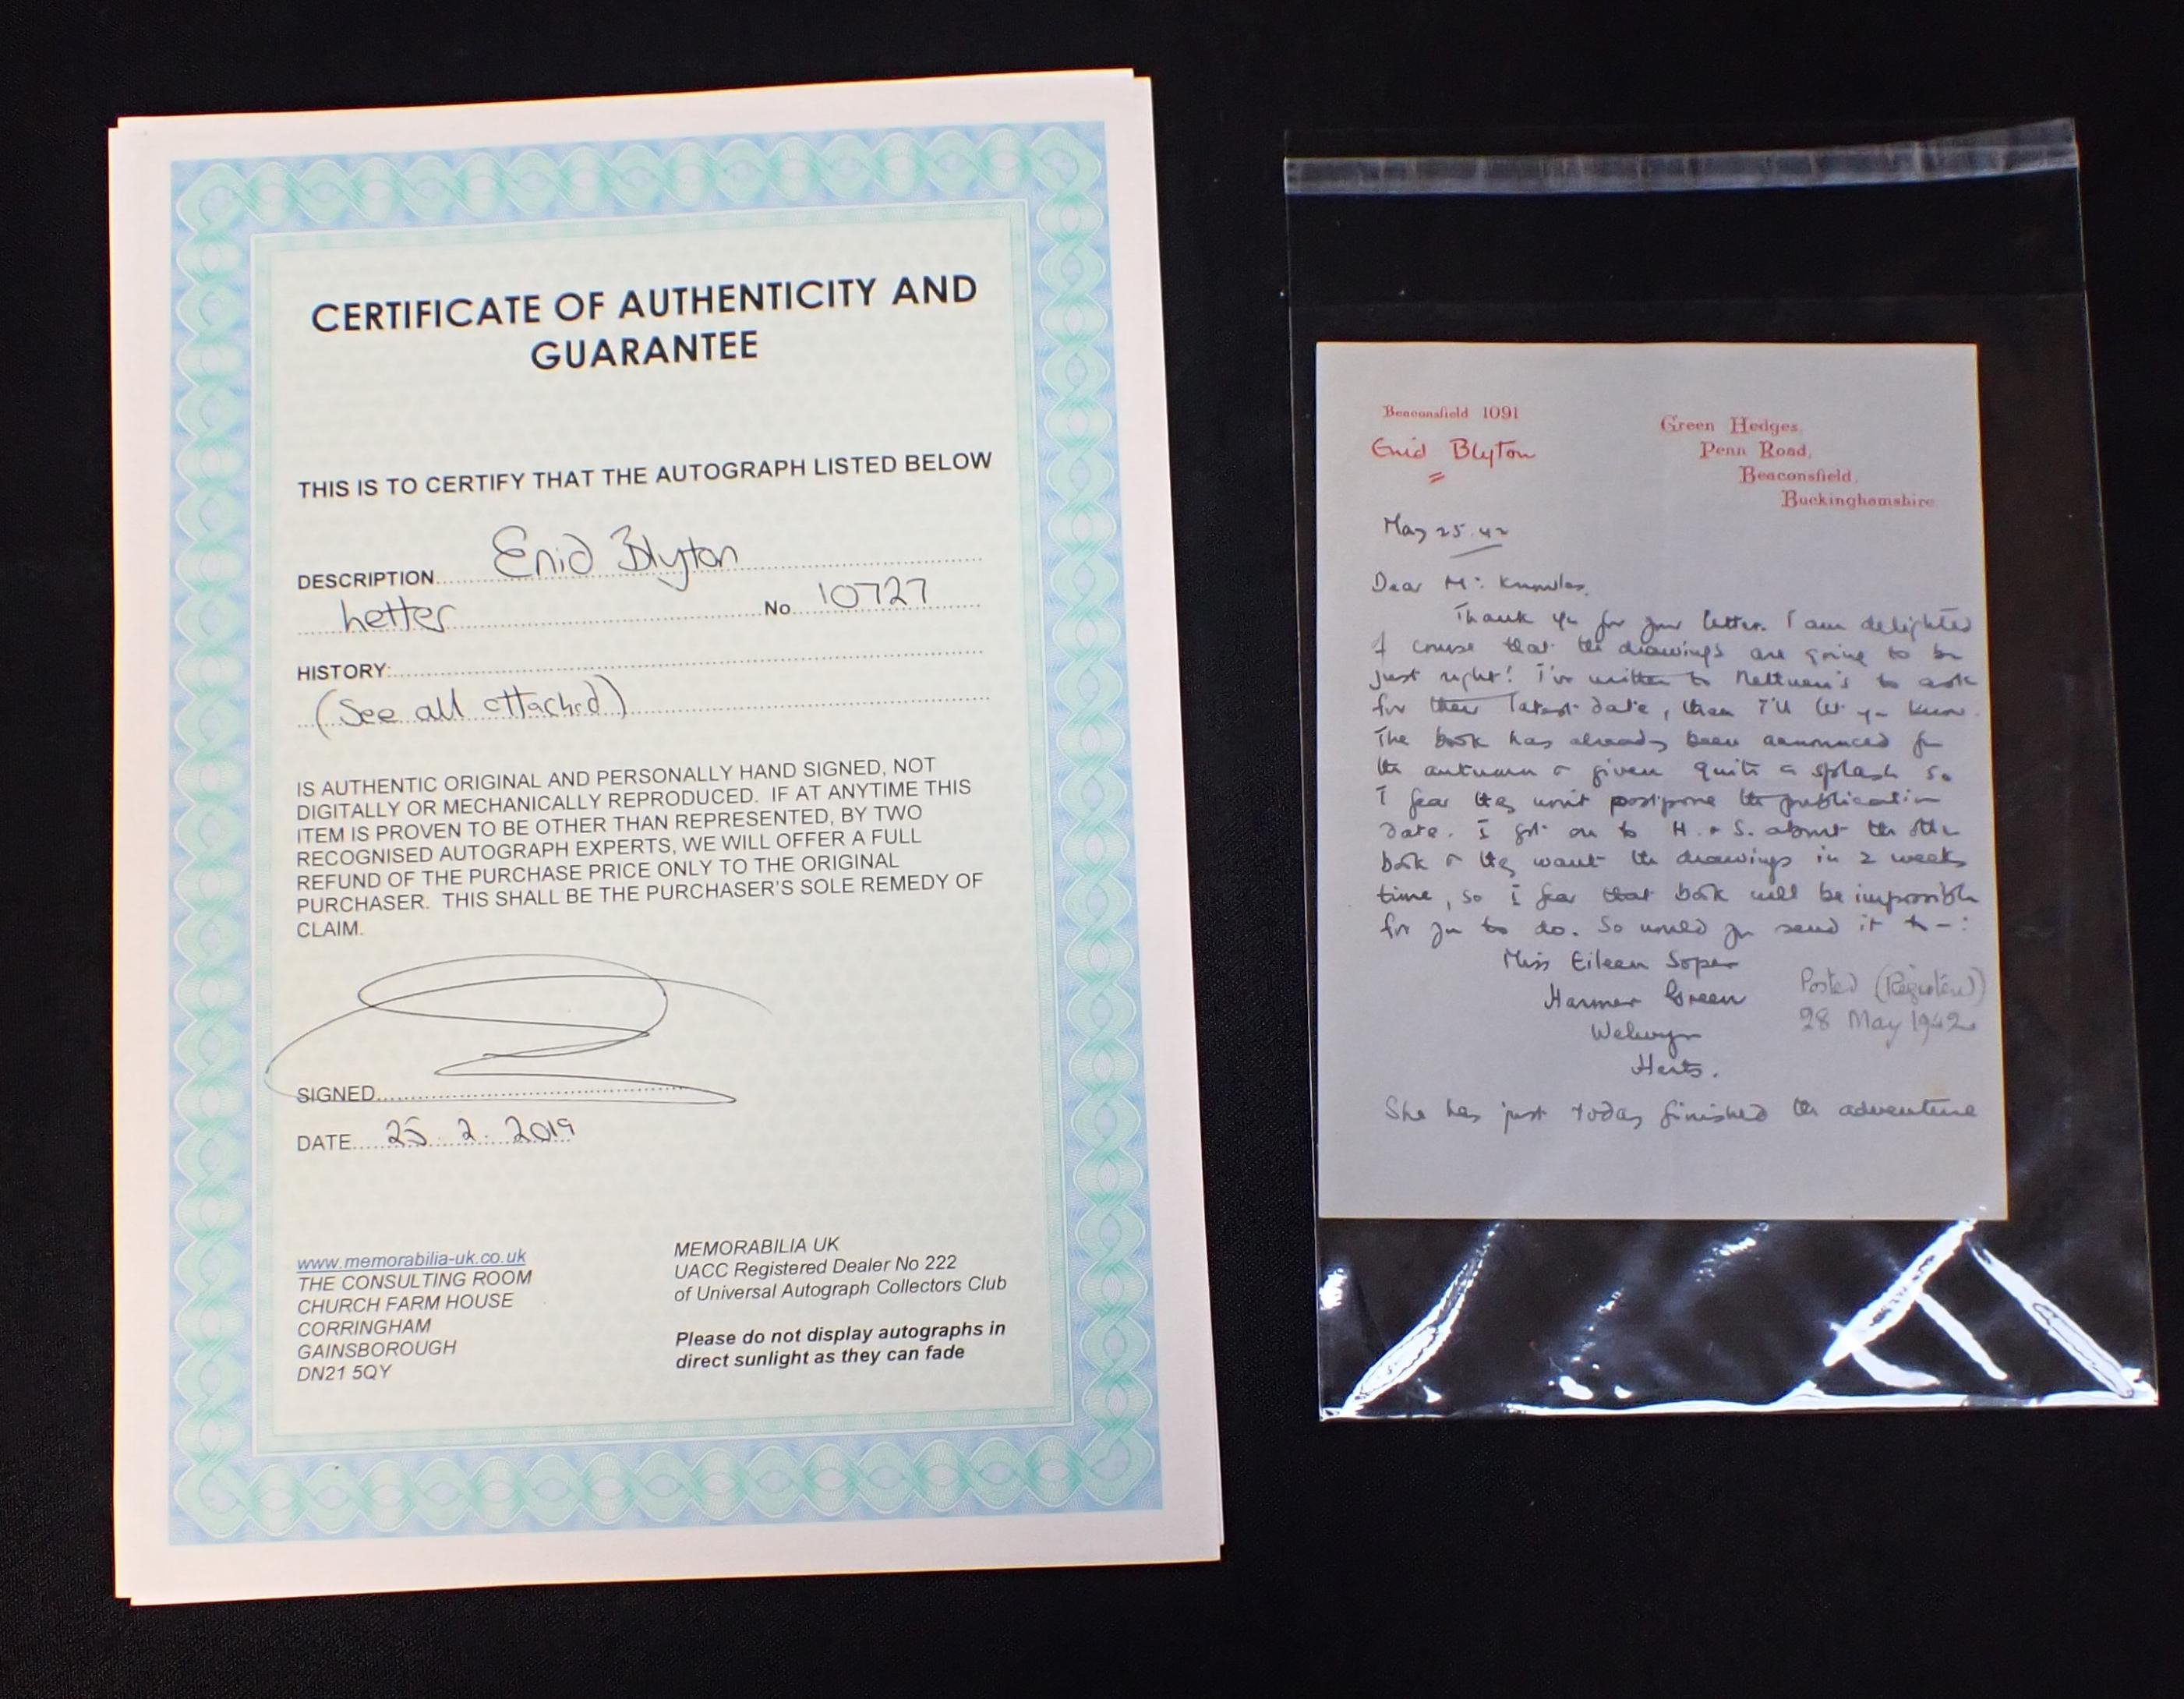 CERTIFICATE OF AUTHENTICITY AND
GUARANTEE
THIS IS TO CERTIFY THAT THE AUTOGRAPH LISTED BELOW
DESCRIPTION Enid Blyton
Letter No 10727
HISTORY:
(See all attached)
IS AUTHENTIC ORIGINAL AND PERSONALLY HAND SIGNED, NOT
DIGITALLY OR MECHANICALLY REPRODUCED. IF AT ANYTIME THIS
ITEM IS PROVEN TO BE OTHER THAN REPRESENTED, BY TWO
RECOGNISED AUTOGRAPH EXPERTS, WE WILL OFFER A FULL
REFUND OF THE PURCHASE PRICE ONLY TO THE ORIGINAL
PURCHASER. THIS SHALL BE THE PURCHASER'S SOLE REMEDY OF
CLAIM.
SIGNED
DATE 25.2.2019
www.memorabilia-uk.co.uk
THE CONSULTING ROOM
CHURCH FARM HOUSE
CORRINGHAM
GAINSBOROUGH
DN21 5QY
MEMORABILIA UK
UACC Registered Dealer No 222
of Universal Autograph Collectors Club
Please do not display autographs in
direct sunlight as they can fade
Beaconsfield 1091
Enid Blyton
Green Hedges,
Penn Road,
Beaconsfield,
Buckinghamshire
May 25.42
Dear Mr. Knowles,
Thank you for your letter. I am delighted
of course that the drawings are going to be
just right! I've written to to ask
for their latest date, then I'll let you know.
The book has already been announced for
the autumn & given quite a splash so
I fear they won't postpone the publication
date. I got on to H. & S. about the other
book & they want the drawings in 2 weeks
time, so I fear that book will be impossible
for you to do. So would you send it to -:
Miss Eileen Soper
Harmer Green
Welwyn
Herts.
Posted (Registered)
28 May 1942
She has just today finished the adventure